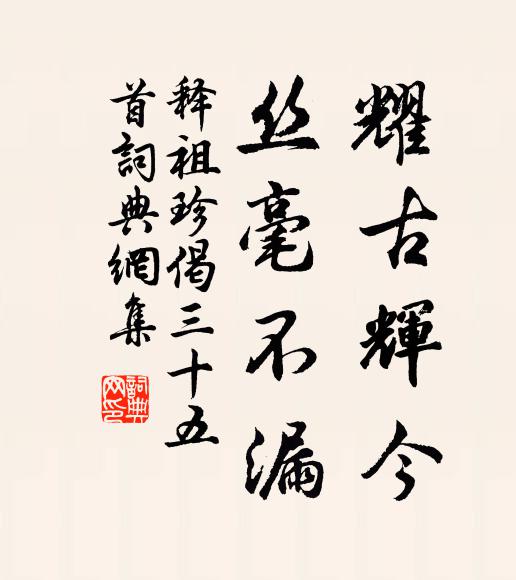 耀古輝今
丝毫不漏
释祖珍偈三十五
首詞典網集
詞典网印